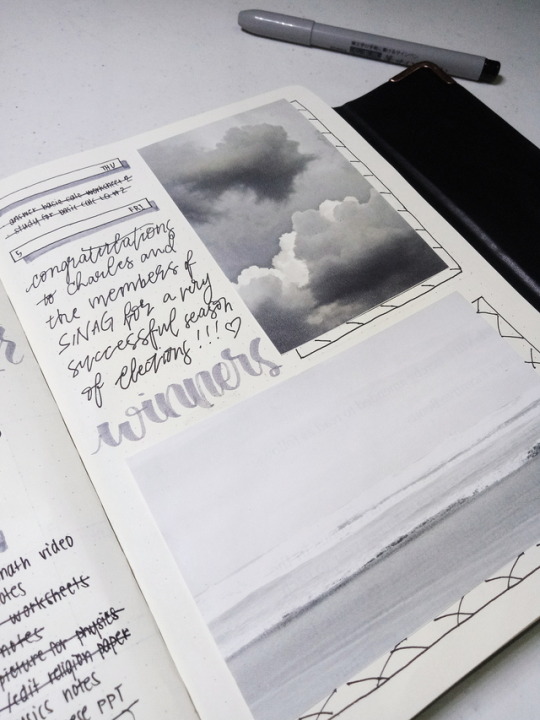 THU
answer basic calc worksheet 2
study for basic calc LQ #2
FRI
5
congratulations
to Charles and
the members of
SINAG for a very
successful season
of elections!!! ♡
winners
math video
notes
worksheets
notes
picture for physics
/edit religion paper
notes
PPT